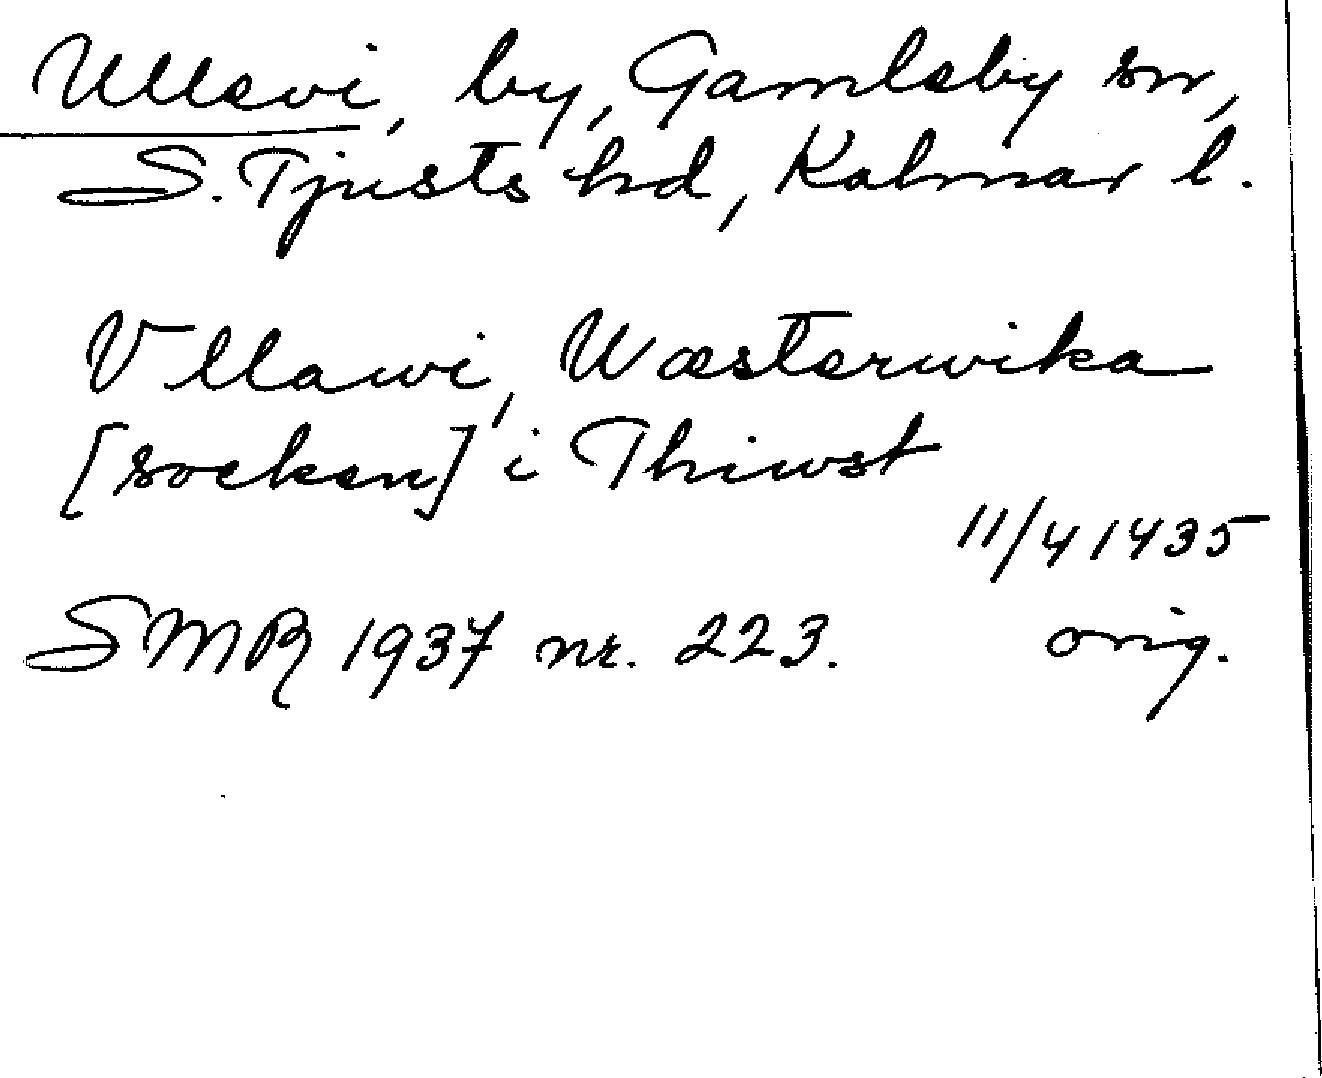 Ullevi, by, Gamleby sn,
S. Tjusts hd, Kalmar l.
Vllawi, Wæsterwika
[socken] i Thiwst
11/4 1435
SMR 1937 nr. 223. orig.